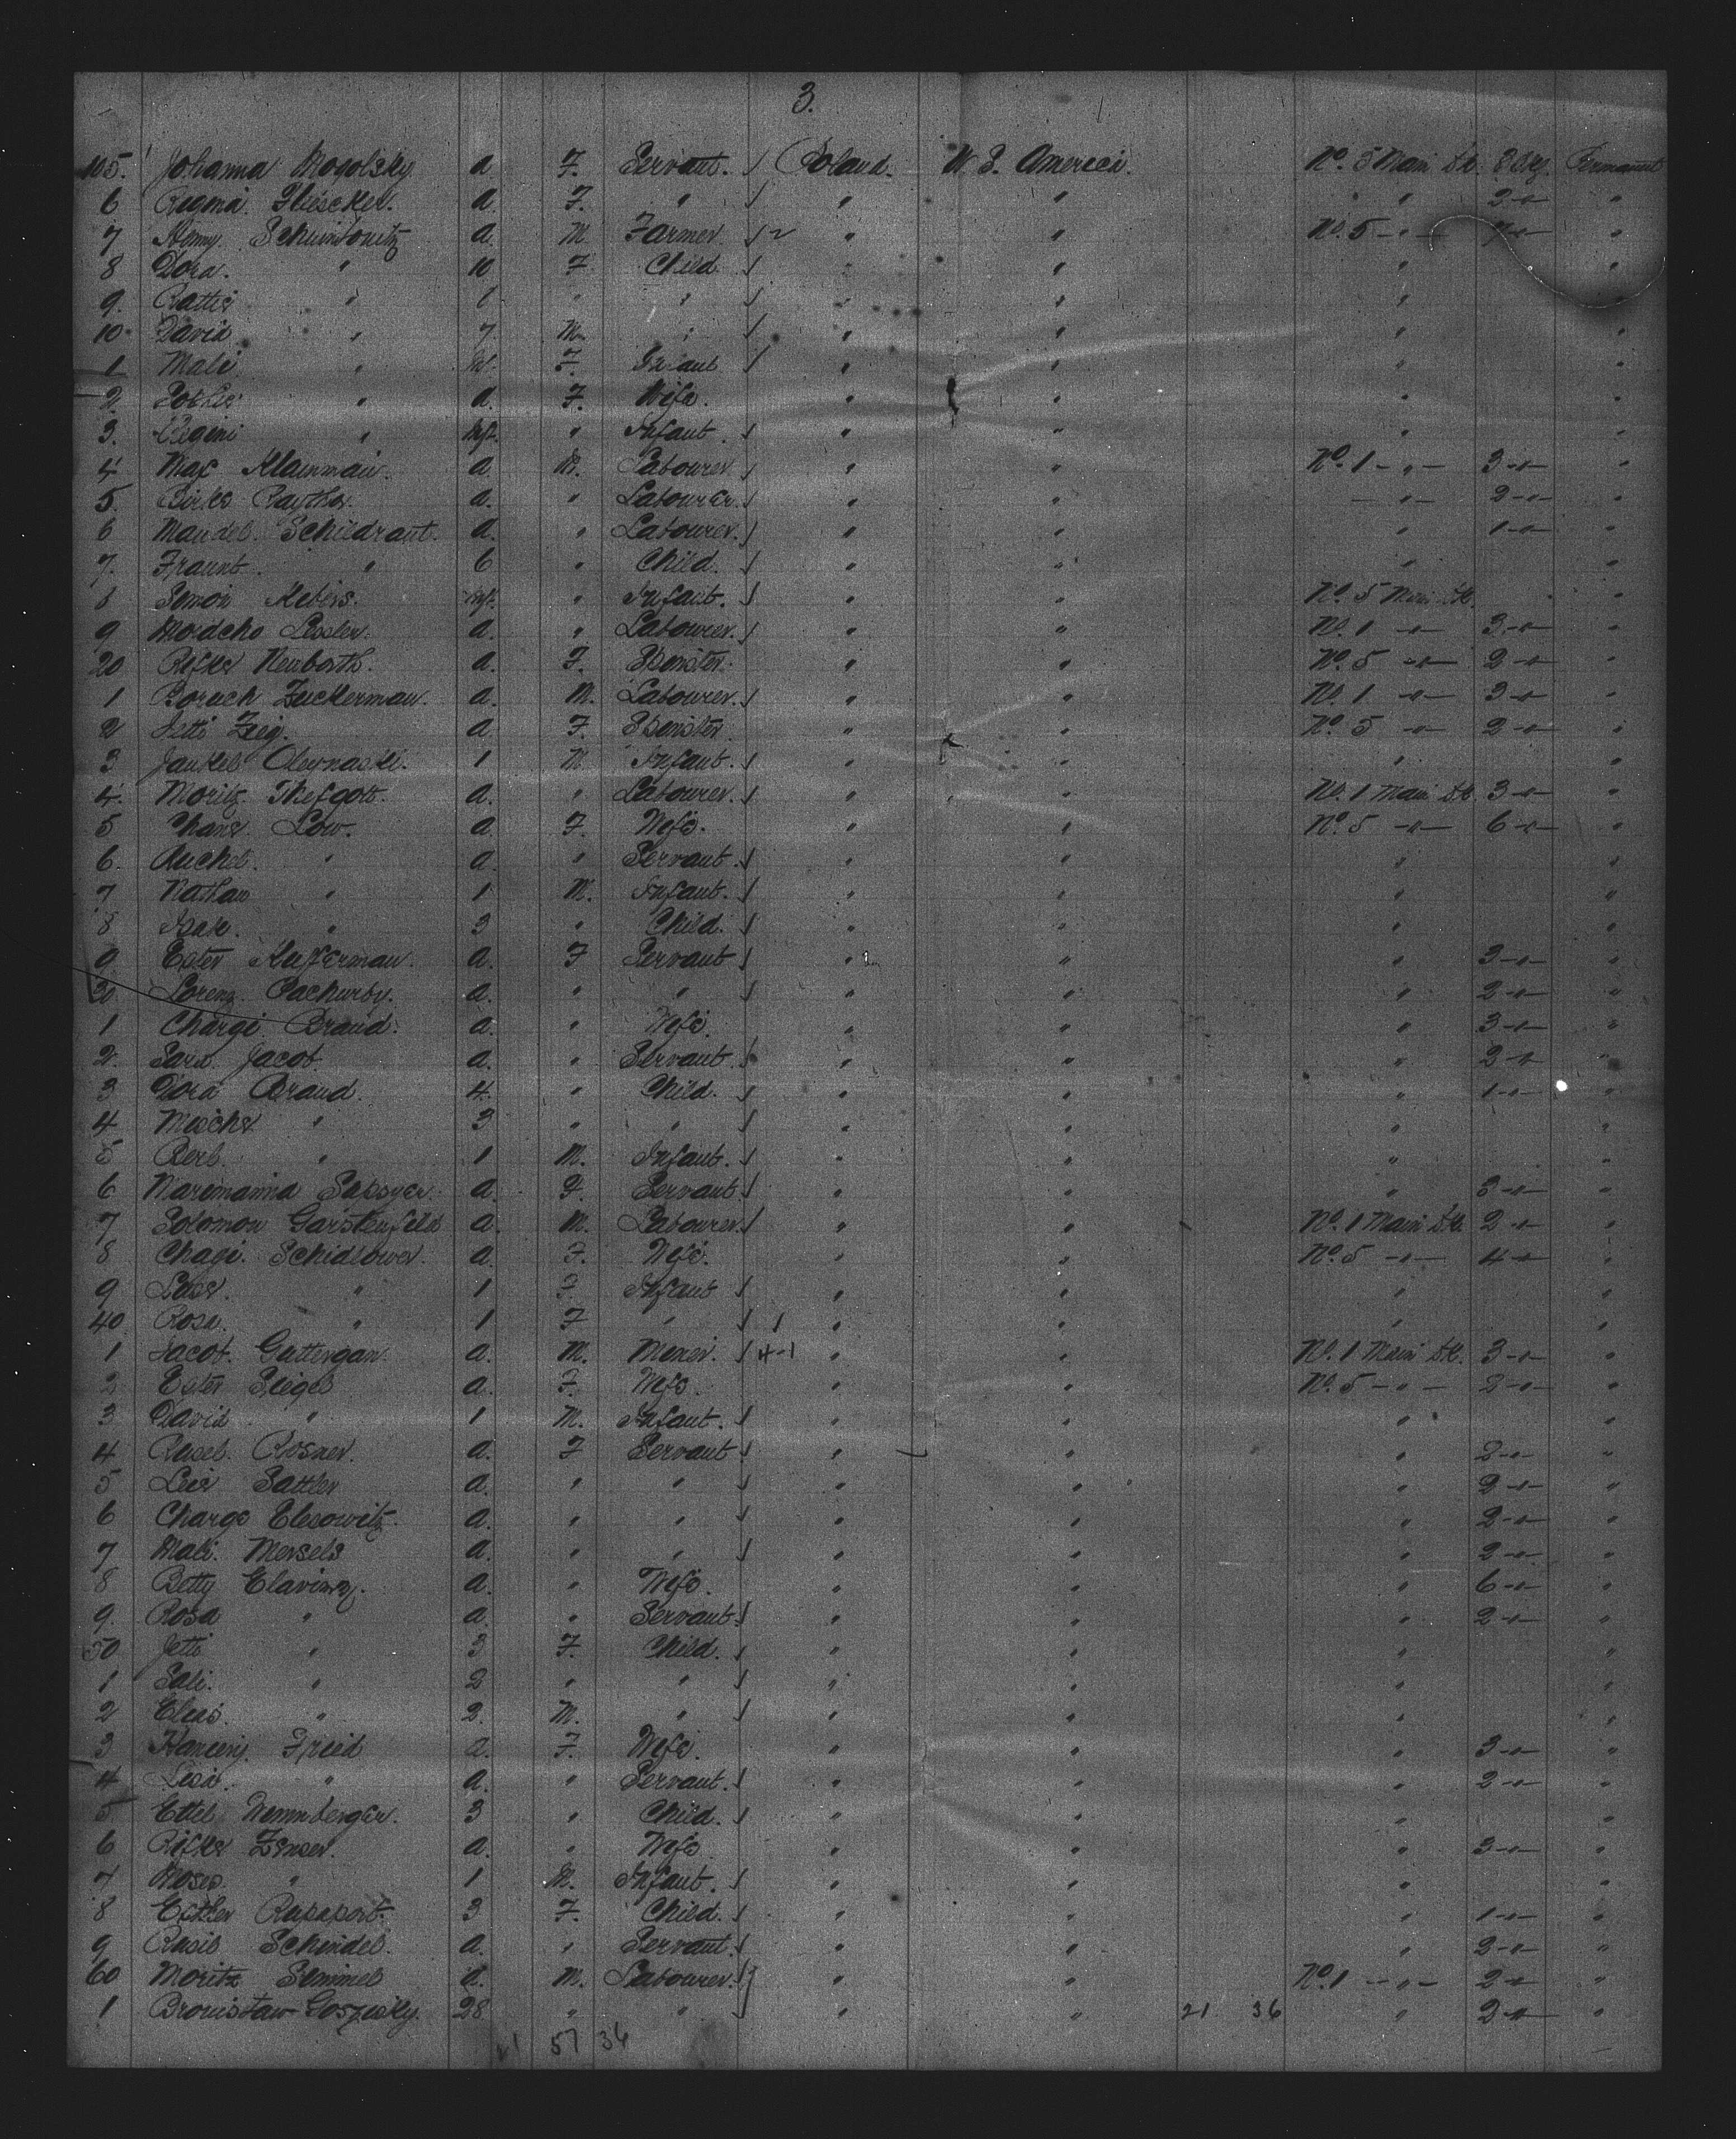 3.
105. Johanna Mogolsky. a F. Servant. Poland. U. S. America. No. 5 Main Dk. 2 Bg. Permanent
6 Regina Fliescher. a. F. " " " " 2 -"- "
7 Henny Schuintouitz a. M. Farmer. " " No. 5 -"- 7 -"- "
8 Dora. " 10 F. Child " " " "
9. " " " " " " "
10 David " 7 M. " " " " "
1 Mali " Inf. F. Infant " " " "
2. " a. F. Wife. " " "
3. Regini " Inf. " Infant. " " " "
4 Max Klainman. a M. Labourer. " " No. 1 -"- 3 -"- "
5. Raythor. a. " Labourer. " " -"- 2 -"- "
6 Mandel Schildraut. a. " Labourer. " " " 1 -"- "
7. Fraunt. " 6 " Child. " " " "
8 Simon Kebers. Inf. " Infant. " " No. 5 Main Dk. "
9 Mordcho Lessler. a. " Labourer. " " No. 1 -"- 3 -"- "
20 Rifke Neuborth. a. F. " " No. 5 -"- 2 -"- "
1 Boruch Zuckerman. a. M. Labourer. " " No. 1 -"- 3 -"- "
2 Jetti Zeig. a F. " " No. 5 -"- 2 -"- "
3 Jankel Oleynaski. 1 M Infant. " " " "
4. Moritz Thefgott. a. " Labourer. " " No. 1 Main Dk. 3 -"- "
5 Chane Low. a. F. Wife. " " No. 5 -"- 6 -"- "
6. Ruchel. " a. " Servant. " " " "
7 Nathan " 1 M. Infant. " " " "
8 Isak. " 3 " Child. " " " "
9 Ester Kufferman. a. F Servant " " " 3 -"- "
30 Lorenz Pachurby. a. " " " " " 2 -"- "
1 Chargi Braud. a. " Wife. " " " 3 -"- "
2. Sara Jacob. a. " Servant. " " " 2 -"- "
3 Dora Braud. 4. " Child. " " " 1 -"- "
4 Mosche " 3 " " " " " "
5 Berl. " 1 M. Infant. " " " "
6 Maremanna Sabsyer. a. F. Servant. " " " 3 -"- "
7 Solomon Garstenfeld a. M. Labourer. " " No. 1 Main Dk. 2 -"- "
8 Chagi. Schidlower. a. F. Wife. " " No. 5 -"- 4 -"- "
9 Leer. " 1 F. Infant " " " "
40 Rosa. " 1 F " 1 " " " "
1 Jacob. Guttergan. a. M. Miner. 4-1 " " No. 1 Main Dk. 3 -"- "
2 Ester Siegel a. F. Wife. " " No. 5 -"- 2 -"- "
3 David " 1 M. Infant. " " " "
4 Rusel. Rosner. a. F Servant. " " " 2 -"- "
5 Leie Sattler a. " " " " " 2 -"- "
6 Charge Elesowitz. a. " " " " " 2 -"- "
7 Mali. Mersels a. " " " " " 2 -"- "
8 Betty a. " Wife. " " " 6 -"- "
9. Rosa " a. " Servant. " " " 2 -"- "
50 Jetti " 3 F. Child. " " " "
1 Sali. " 2 " " " " " "
2 Elias. " 2. M. " " " " "
3 Fried a. F. Wife. " " " 3 -"- "
4 Lesi. " a. " Servant. " " " 2 -"- "
5 Ettel Wennberger. 3 " Child. " " " "
6 Rifke Zenser. a. " Wife. " " " 3 -"- "
7 Moses. " 1 M. Infant. " " " "
8 Esther Rapaport. 3 F. Child. " " " 1 -"- "
9 Rusil Schindel. a. " Servant. " " " 2 -"- "
60 Moritz Semmel a. M. Labourer. " " No. 1 -"- 2 -"- "
1 Bronistaw Goszisky. 28 " " " " 21 36 " 2 -"- "
21 57 36